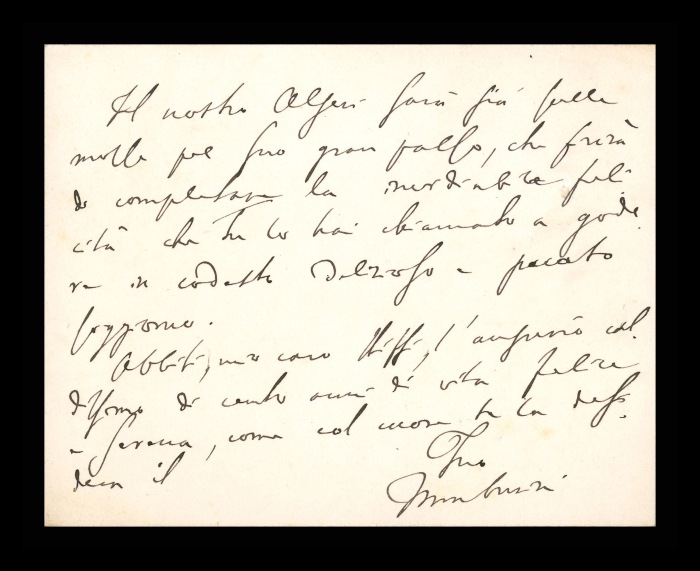 Il nostro Algeri sarà già sulle
molle pel suo gran passo, che finirà
di completare la invidiabile feli-
cità che tu lo hai chiamato a gode-
re in codesto delizioso e pacato
soggiorno.
Abbiti, mio caro, l'augurio cal-
dissimo di cento anni di vita felice
e serena, come col cuore te la desi-
dera il
Tuo